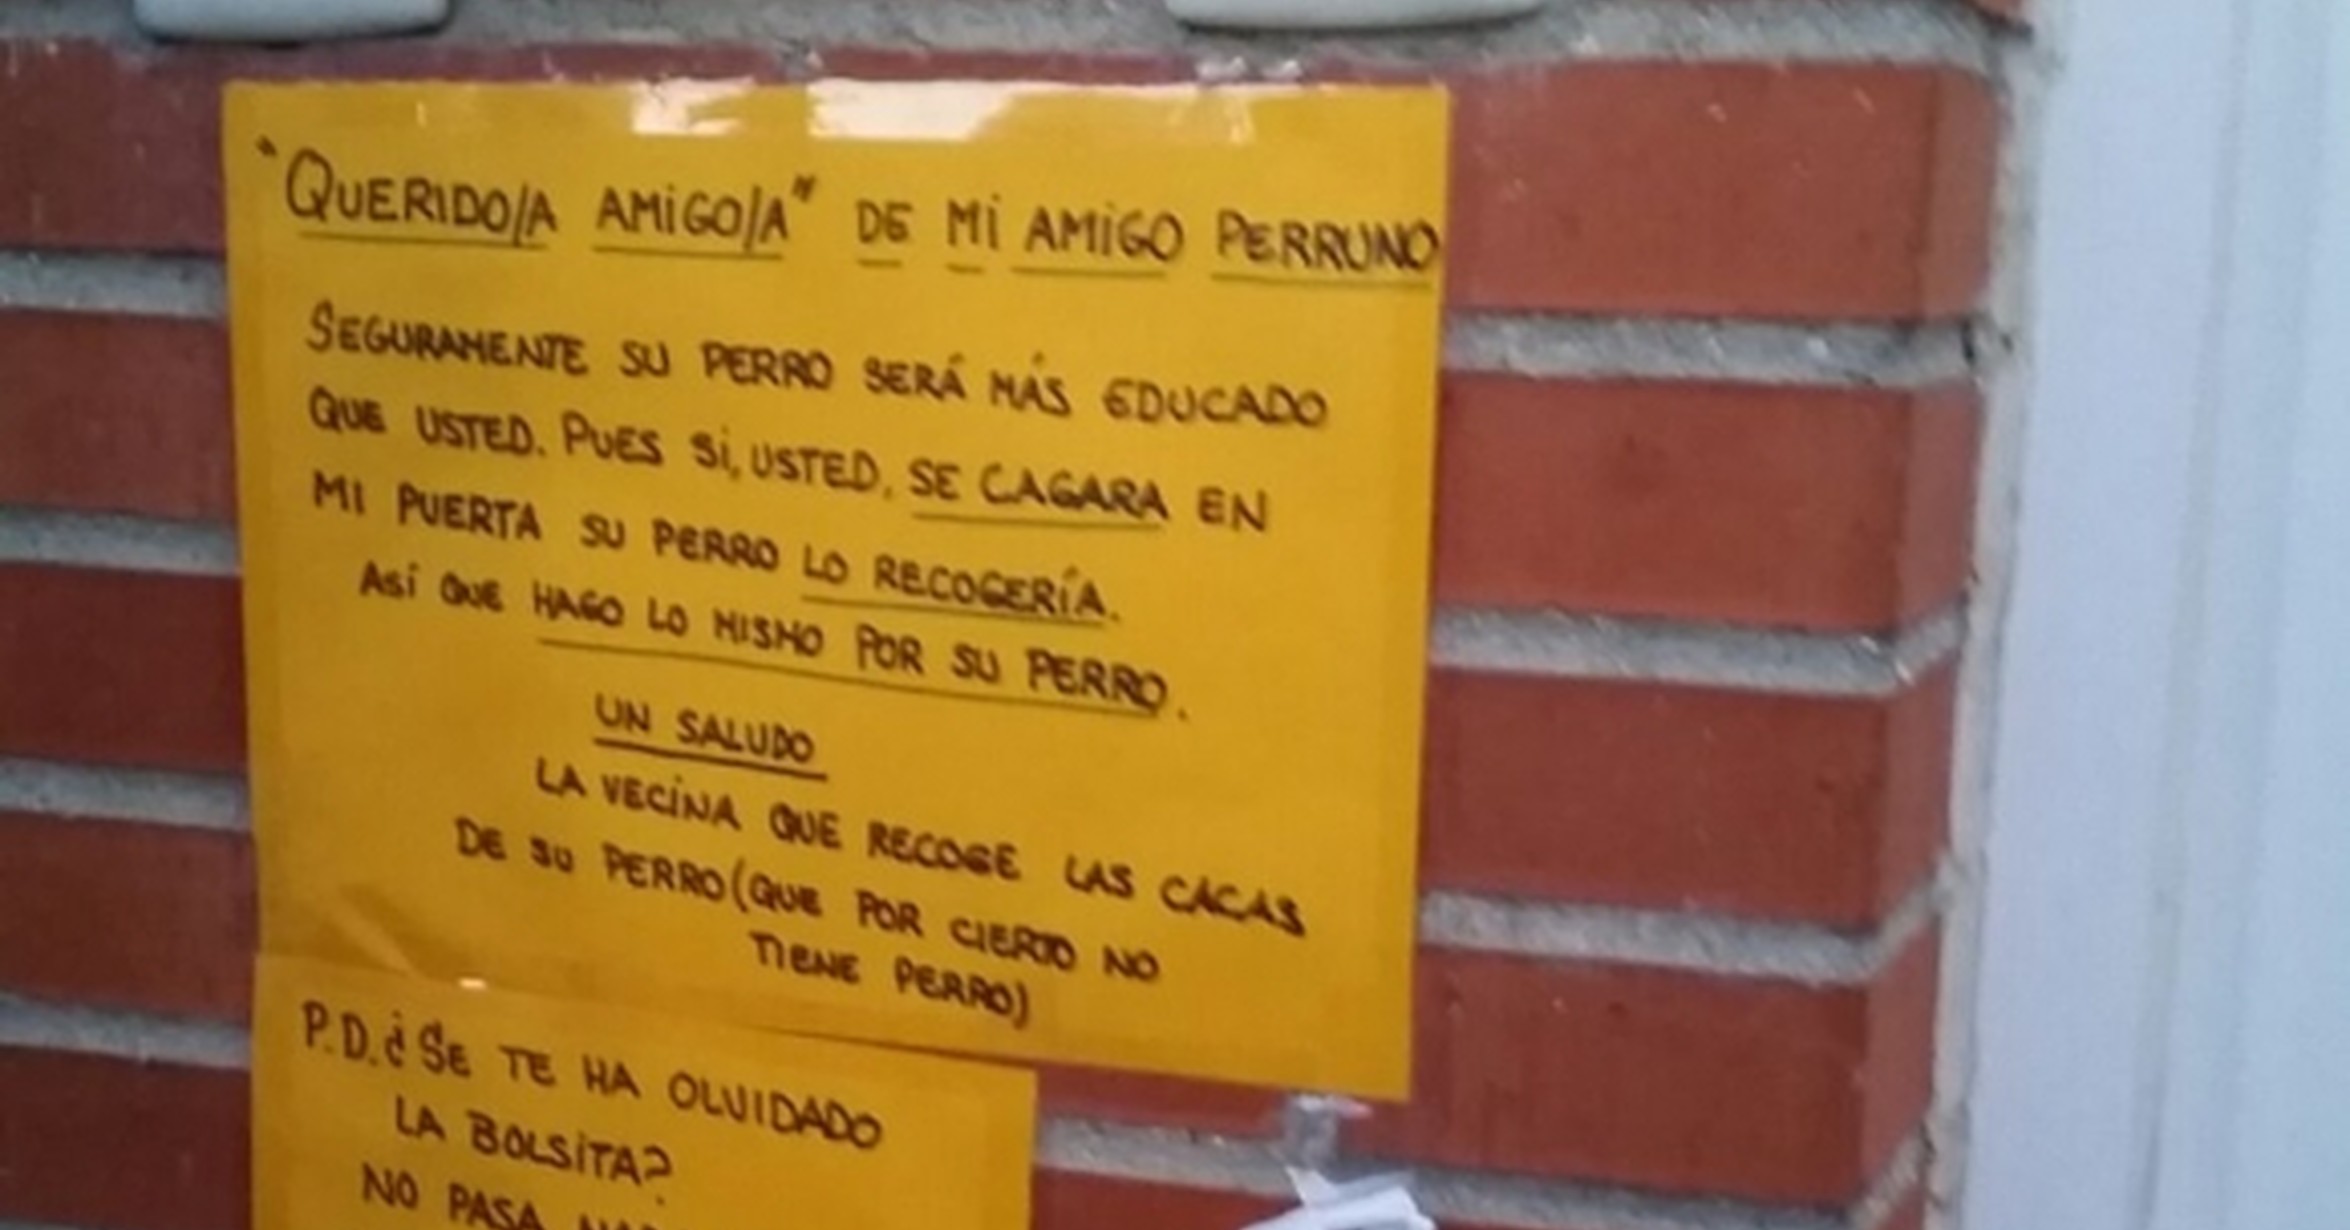 "QUERIDO/A AMIGO/A" DE MI AMIGO PERRUNO
SEGURAMENTE SU PERRO SERÁ MÁS EDUCADO
QUE USTED. PUES SI, USTED, SE CAGARA EN
MI PUERTA SU PERRO LO RECOGERÍA.
ASÍ QUE HAGO LO MISMO POR SU PERRO.
UN SALUDO
LA VECINA QUE RECOGE LAS CACAS
DE SU PERRO (QUE POR CIERTO NO
TIENE PERRO)
P.D. ¿SE TE HA OLVIDADO
LA BOLSITA?
NO PASA